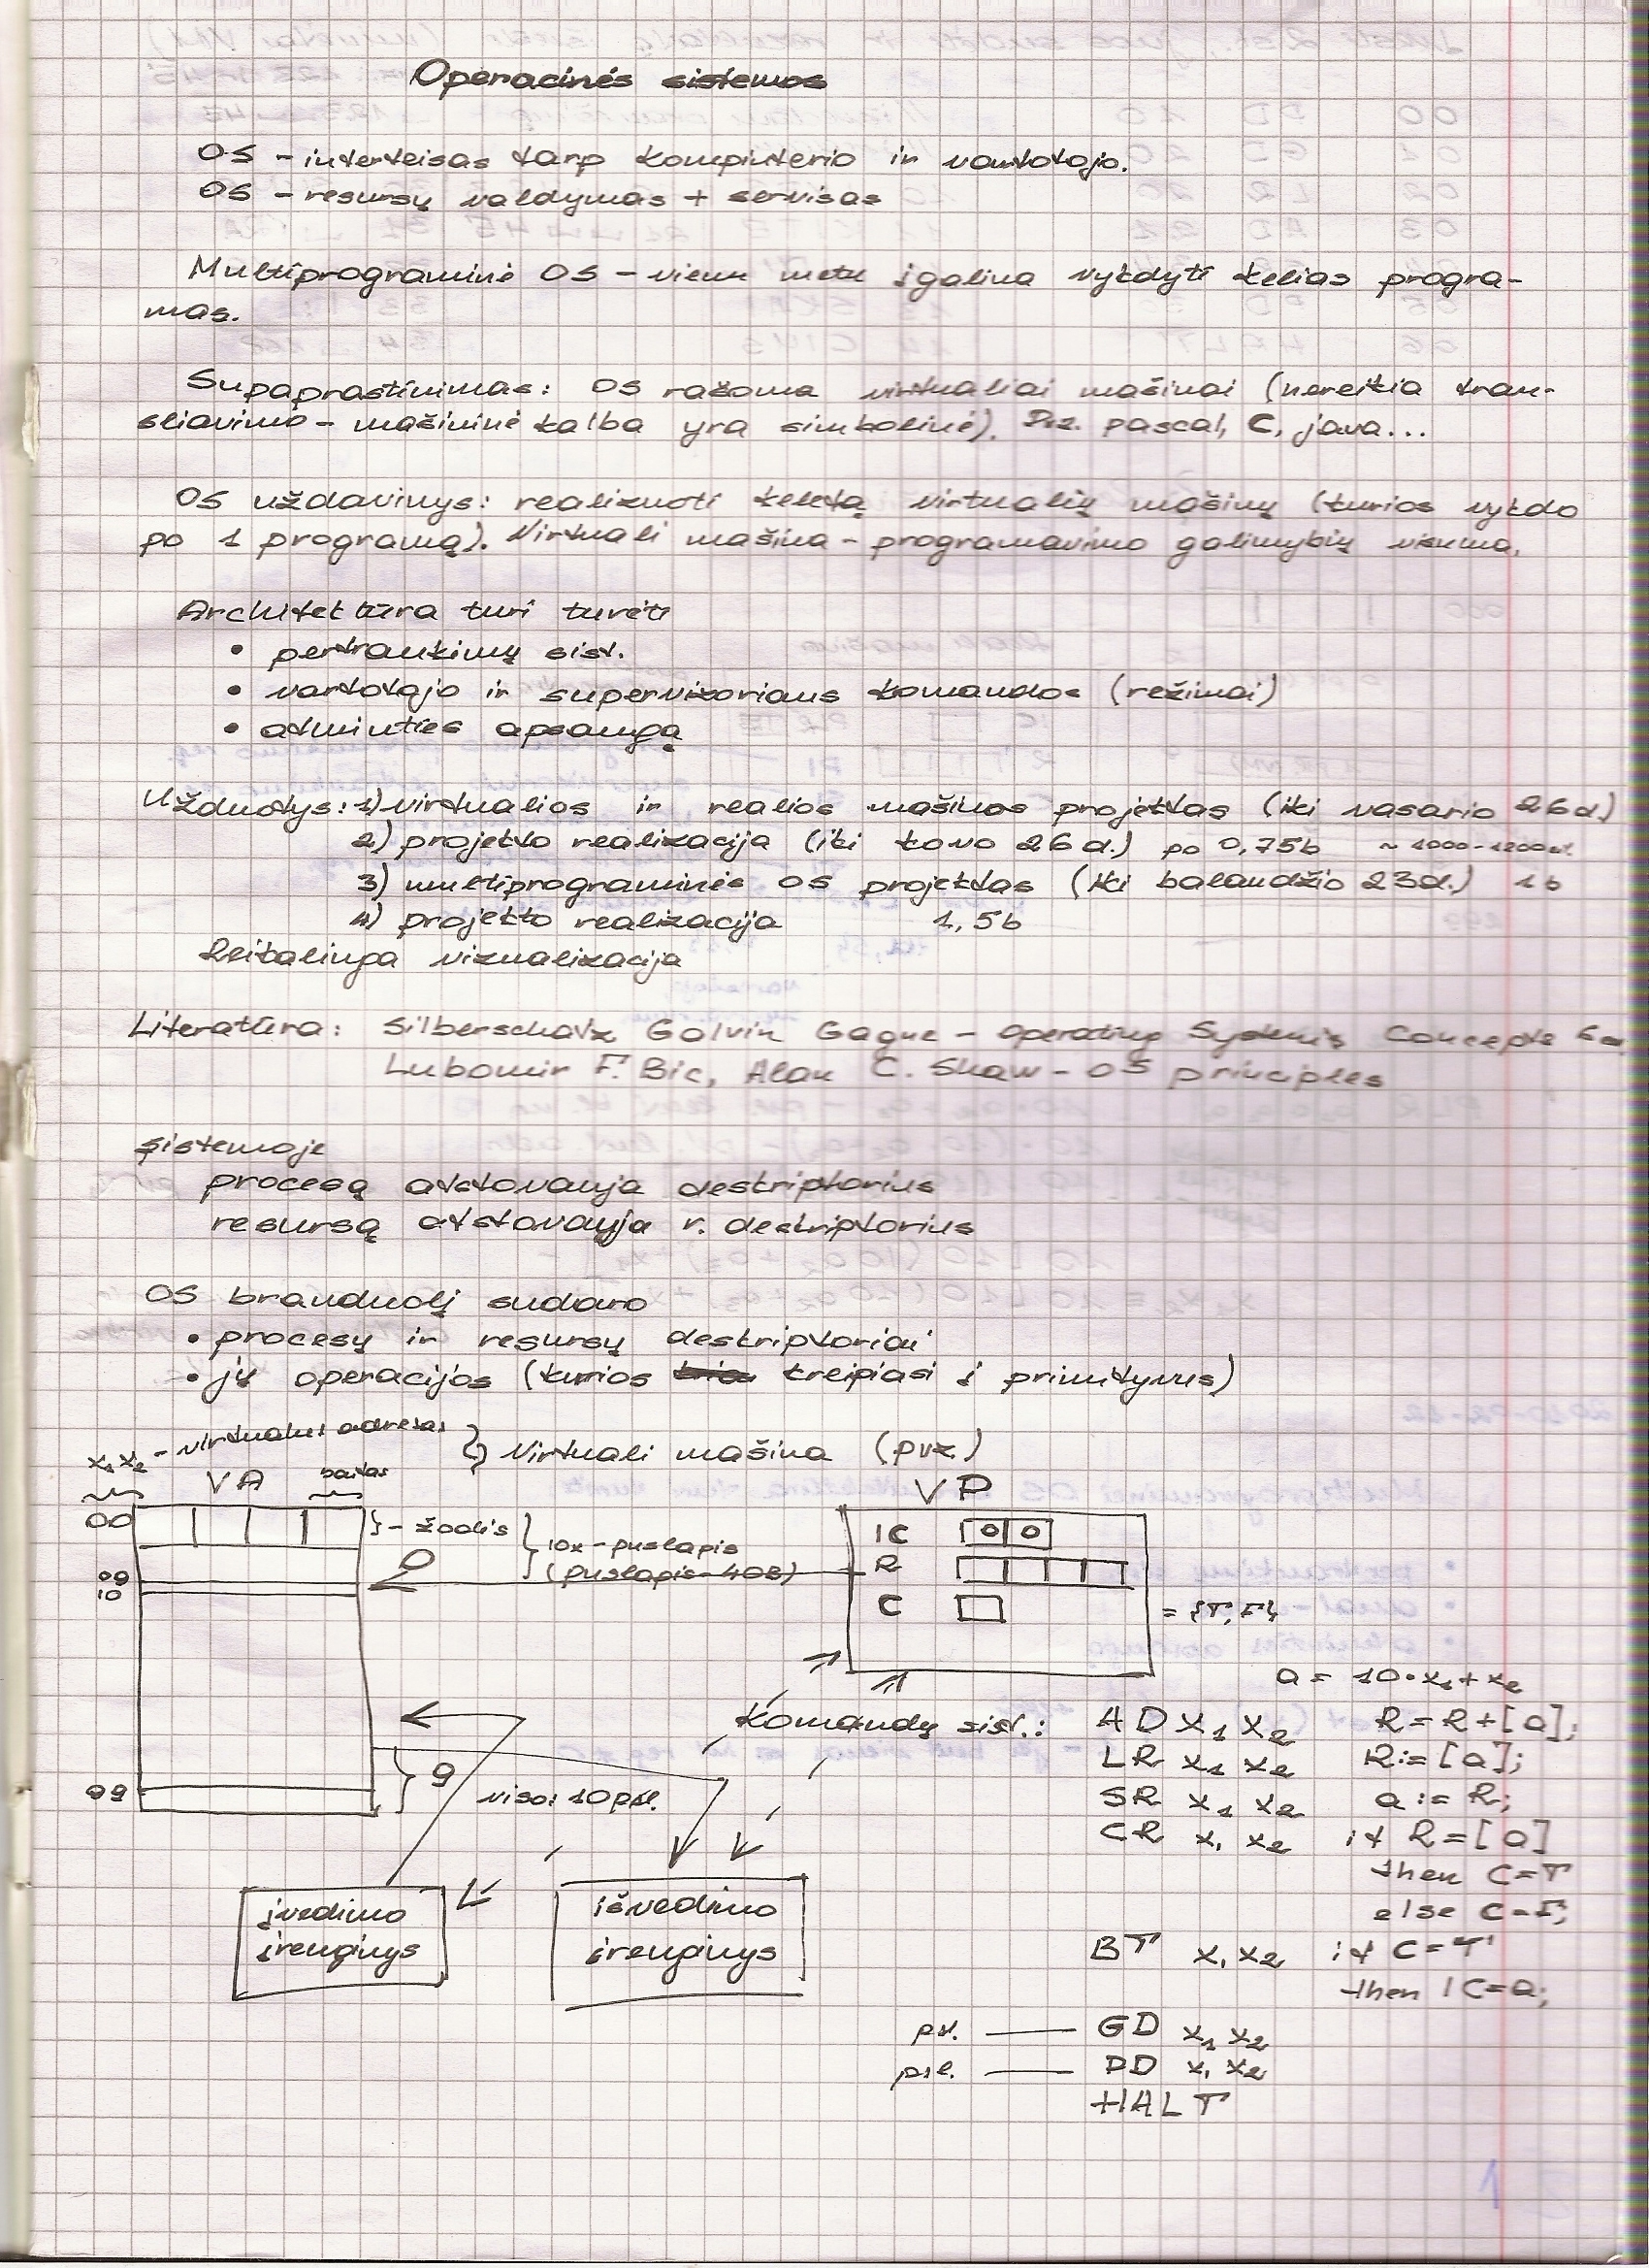 Operacinės sistemos
OS - interfeisas tarp kompiuterio ir vartotojo.
OS - resursų valdymas + servisas
Multiprograminė OS - vienu metu įgalina vykdyti kelias progra-
mas.
Supaprastinimas: OS rašoma virtualiai mašinai (nereikia tran-
sliavimo - mašininė kalba yra simbolinė). Pvz. pascal, C, java...
OS uždavinys: realizuoti keletą virtualių mašinų (kurios vykdo
po 1 programą). Virtuali mašina - programavimo galimybių visuma.
Architektūra turi turėti
• pertraukimų sist.
• vartotojo ir supervizoriaus komandos (režimai)
• atminties apsaugą
Užduotys: 1) virtualios ir realios mašinos projektas (iki vasario 26 d.)
2) projekto realizacija (iki kovo 26 d.) po 0,75b ~ 1000-1200
3) multiprograminės OS projektas (iki balandžio 23d.) 1b
4) projekto realizacija 1,5b
Reikalinga vizualizacija
Literatūra: Silberschatz Galvin Gagne - Operating Systems Concepts
Lubomir F. Bic, Alan C. Shaw - OS principles
Sistemoje
procesą atstovauja deskriptorius
resursą atstovauja r. deskriptorius
OS branduolį sudaro
• procesų ir resursų deskriptoriai
• jų operacijos (kurios kreipiasi į primityvus)
x₁x₂ - virtualus adresas } Virtuali mašina (pvz)
VA baitas VP
00 } - žodis } 10x - puslapis
(puslapis - 40B)
IC 0 0
R
C = {T, F}
0
09
10
a = 10·x₁+x₂
Komandų sist.: AD x₁ x₂ R = R+[a];
LR x₁ x₂ R:= [a];
99 } 9 viso: 10 psl. SR x₁ x₂ a := R;
CR x₁ x₂ if R=[a]
then C=T
else C=F;
įvedimo
įrenginys
išvedimo
įrenginys
BT x₁x₂ if C=T
then IC=a;
GD x₁ x₂
psl. — PD x₁ x₂
HALT
1